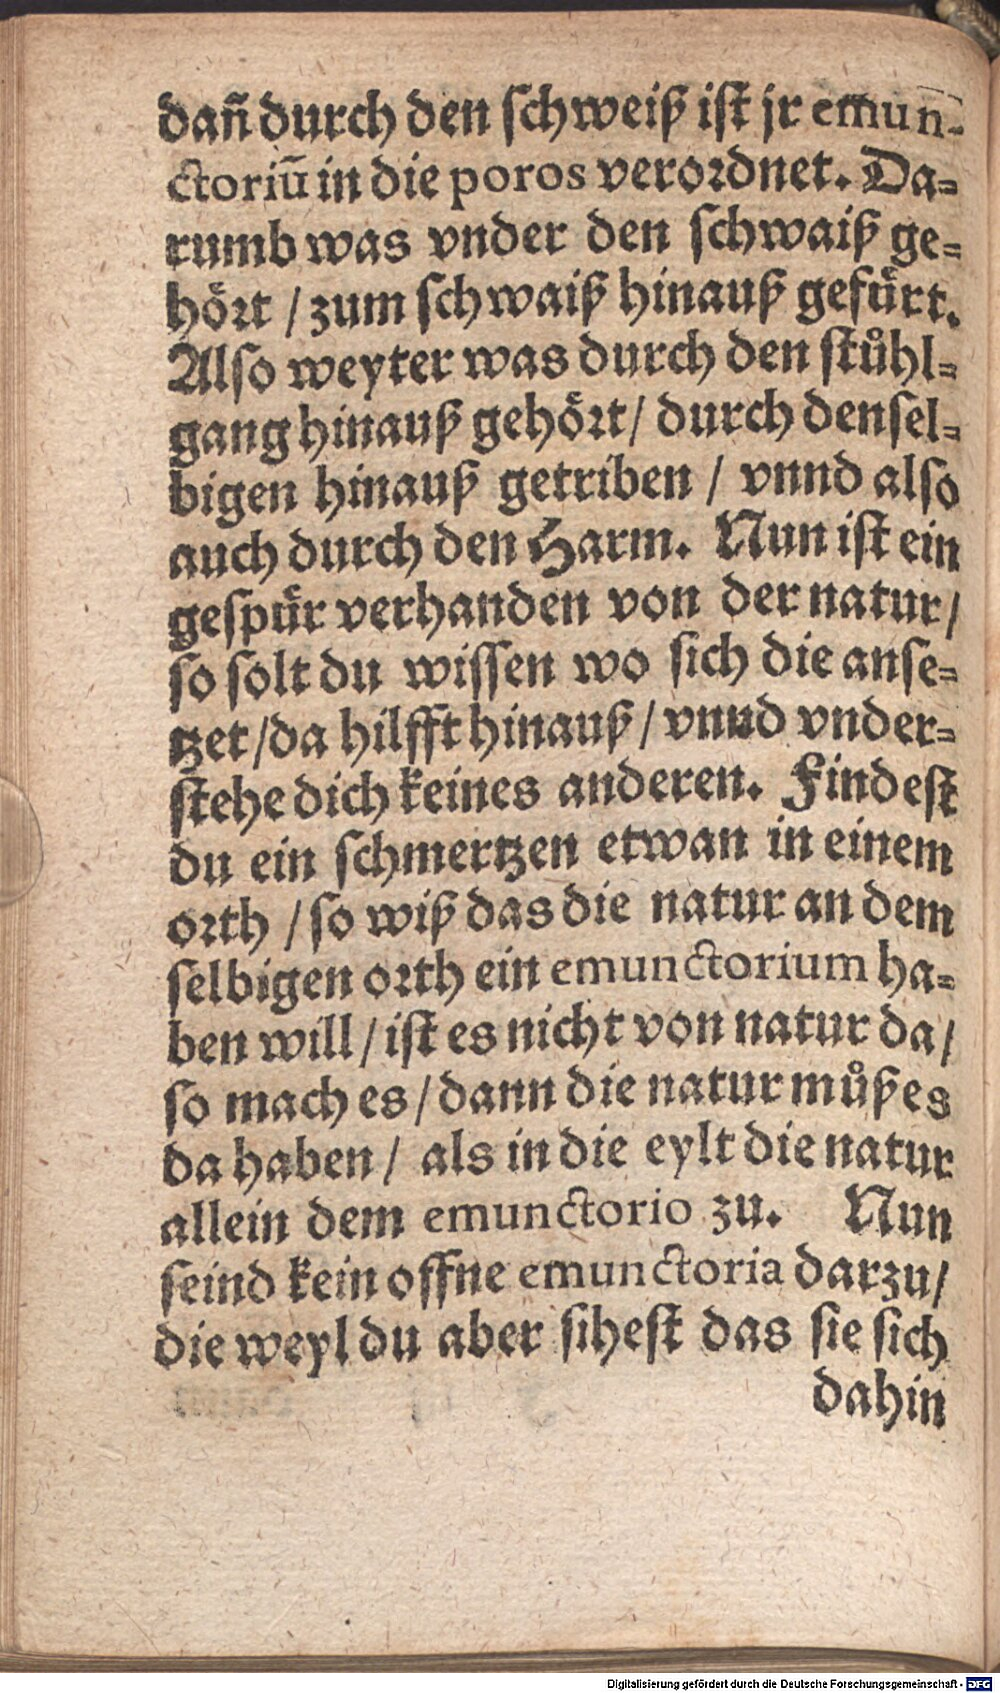 dañ durch den schweiß ist jr emun-
ctoriū in die poros verordnet. Da-
rumb was vnder den schwaiß ge-
hört / zum schwaiß hinauß gefürt.
Also weyter was durch den stůhl-
gang hinauß gehört / durch densel-
bigen hinauß getriben / vnnd also
auch durch den Harm. Nun ist ein
gespür verhanden von der natur /
so solt du wissen wo sich die anse-
tzet / da hilfft hinauß / vnud vnder-
stehe dich keines anderen. Findest
du ein schmertzen etwan in einem
orth / so wiß das die natur an dem
selbigen orth ein emunctorium ha-
ben will / ist es nicht von natur da /
so mach es / dann die natur můß es
da haben / als in die eylt die natur
allein dem emunctorio zu. Nun
seind kein offne emunctoria darzu /
die weyl du aber sihest das sie sich
dahin
Digitalisierung gefördert durch die Deutsche Forschungsgemeinschaft - DFG